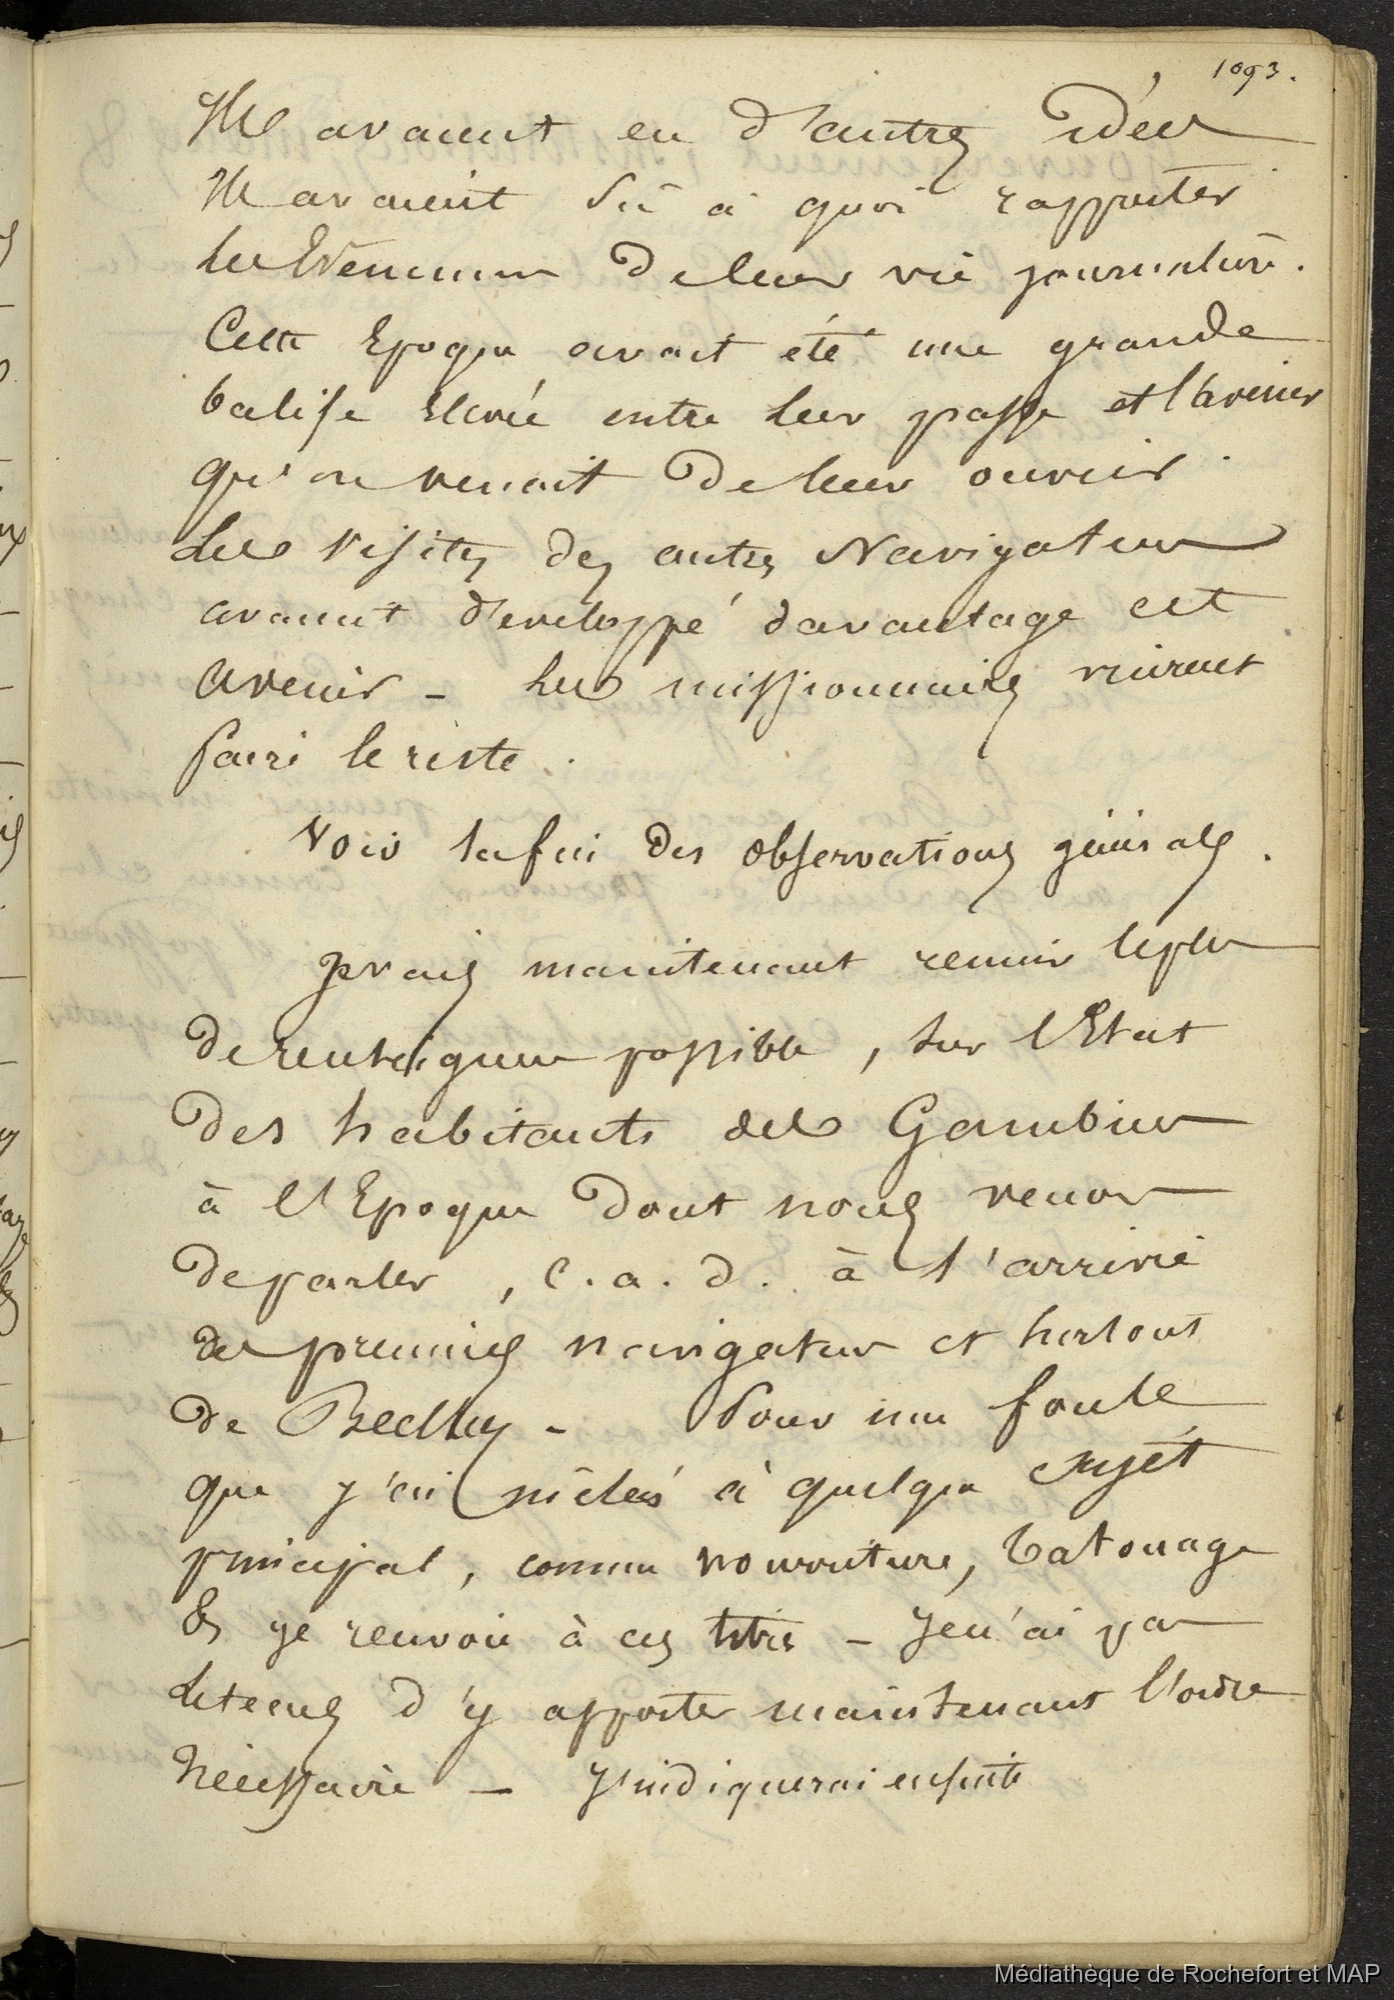 1093.
Ils avaient eu d'autres idées
Ils avaient su à quoi rapporter
les Evènemens de leur vie journalière.
Cette Epoque avait été une grande
balise élevée entre leur passé et l'avenir
qu'on venait de leur ouvrir.
Les visites des autres Navigateurs
avaient développé davantage cet
avenir - les missionnaires vinrent
faire le reste.
Voir la fin des observations générales.
Je vais maintenant réunir le plus
de renseignemens possible, sur l'Etat
des habitants des Gambier
à l'Epoque dont nous venons
de parler, c.a.d. à l'arrivée
des premiers navigateurs et surtout
de Beechey - Pour une foule
que j'ai mêlés à quelque sujet
principal, comme nourriture, tatouage
& je renvoie à ces titres - Je n'ai pas
le tems d'y apporter maintenant l'ordre
nécessaire - J'indiquerai ensuite
Médiathèque de Rochefort et MAP